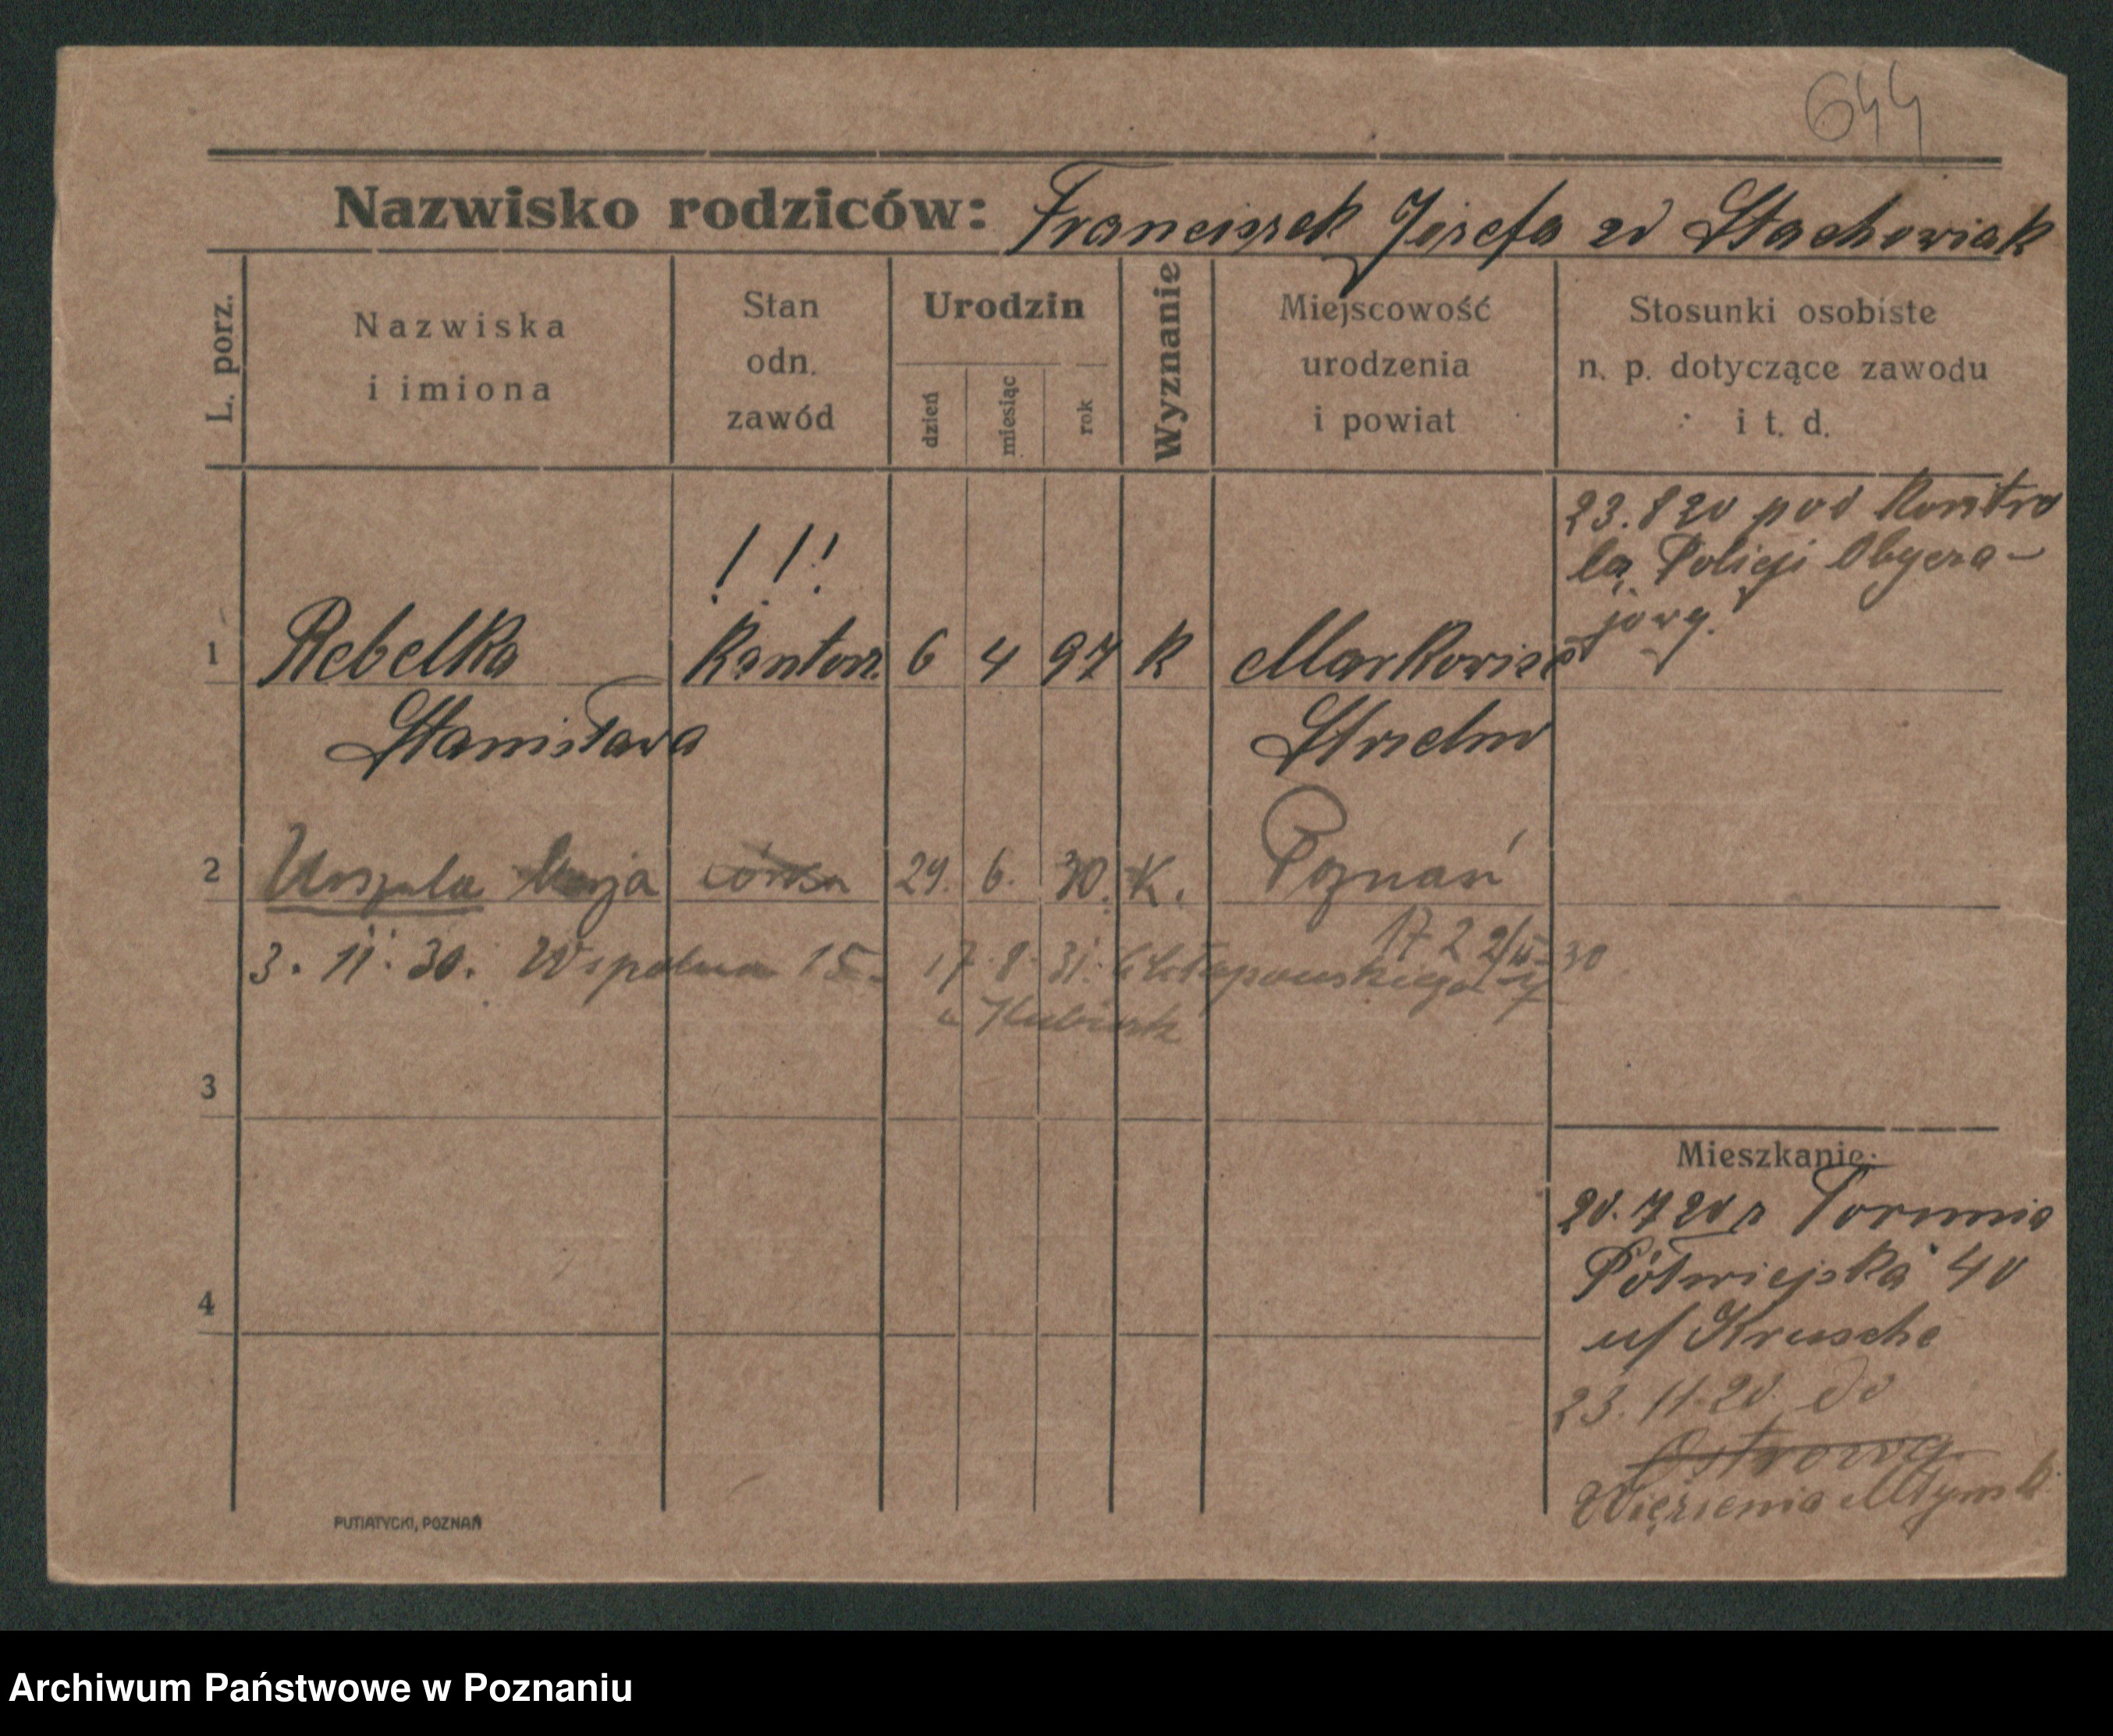 644
Nazwisko rodziców: Franciszek Józefa zd Stachowiak
L. porz.
Nazwiska
i imiona
Stan
odn.
zawód
Urodzin
dzień
miesiąc
rok
Wyznanie
Miejscowość
urodzenia
i powiat
Stosunki osobiste
n. p. dotyczące zawodu
i t. d.
23.8 20 pod Kontro
lą Policji Obycza-
jowej.
! ! !
1 Rebelka Kontorz. 6 4 97 K Markowice
Stanisława Strzelno
2 Urszula Marja córka 29. 6. 30. K. Poznań
17 2
30
3. 11. 30. Wspólna 15. 17. 8. 31. Chłapowskiego
u Kubiak
3
Mieszkanie:
20. 7 20 z Torunia
Półwiejska 40
u/ Krusche
4
23. 11. 20. do
Ostrowa
Więzienia Młyńsk.
PUTIATYCKI, POZNAŃ
Archiwum Państwowe w Poznaniu